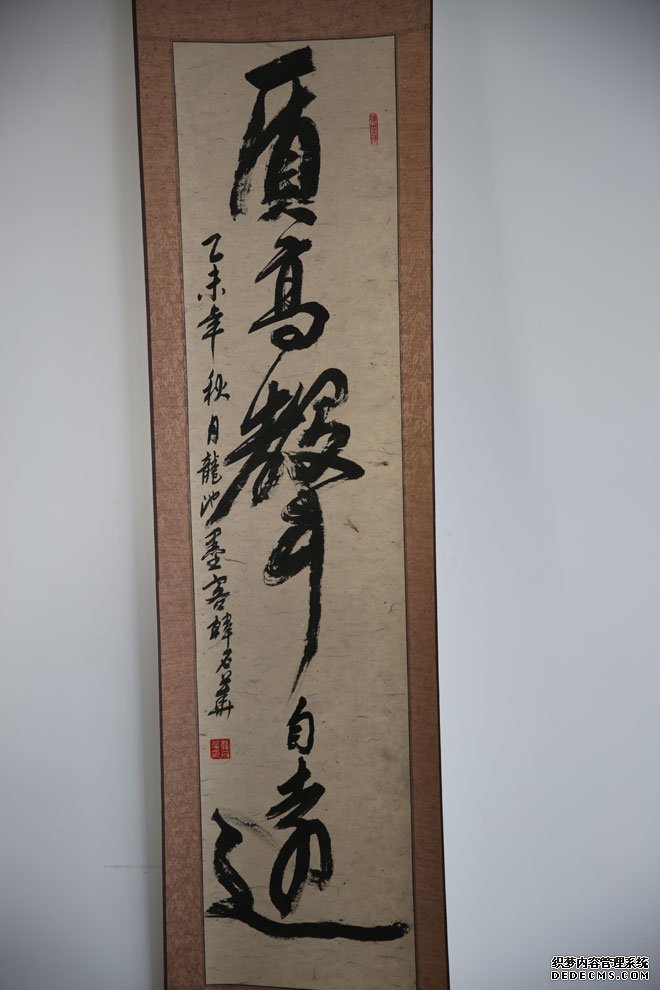 质高聲自遠
乙未年秋月龍池墨客韓石華
织梦内容管理系统
DEDECMS.COM